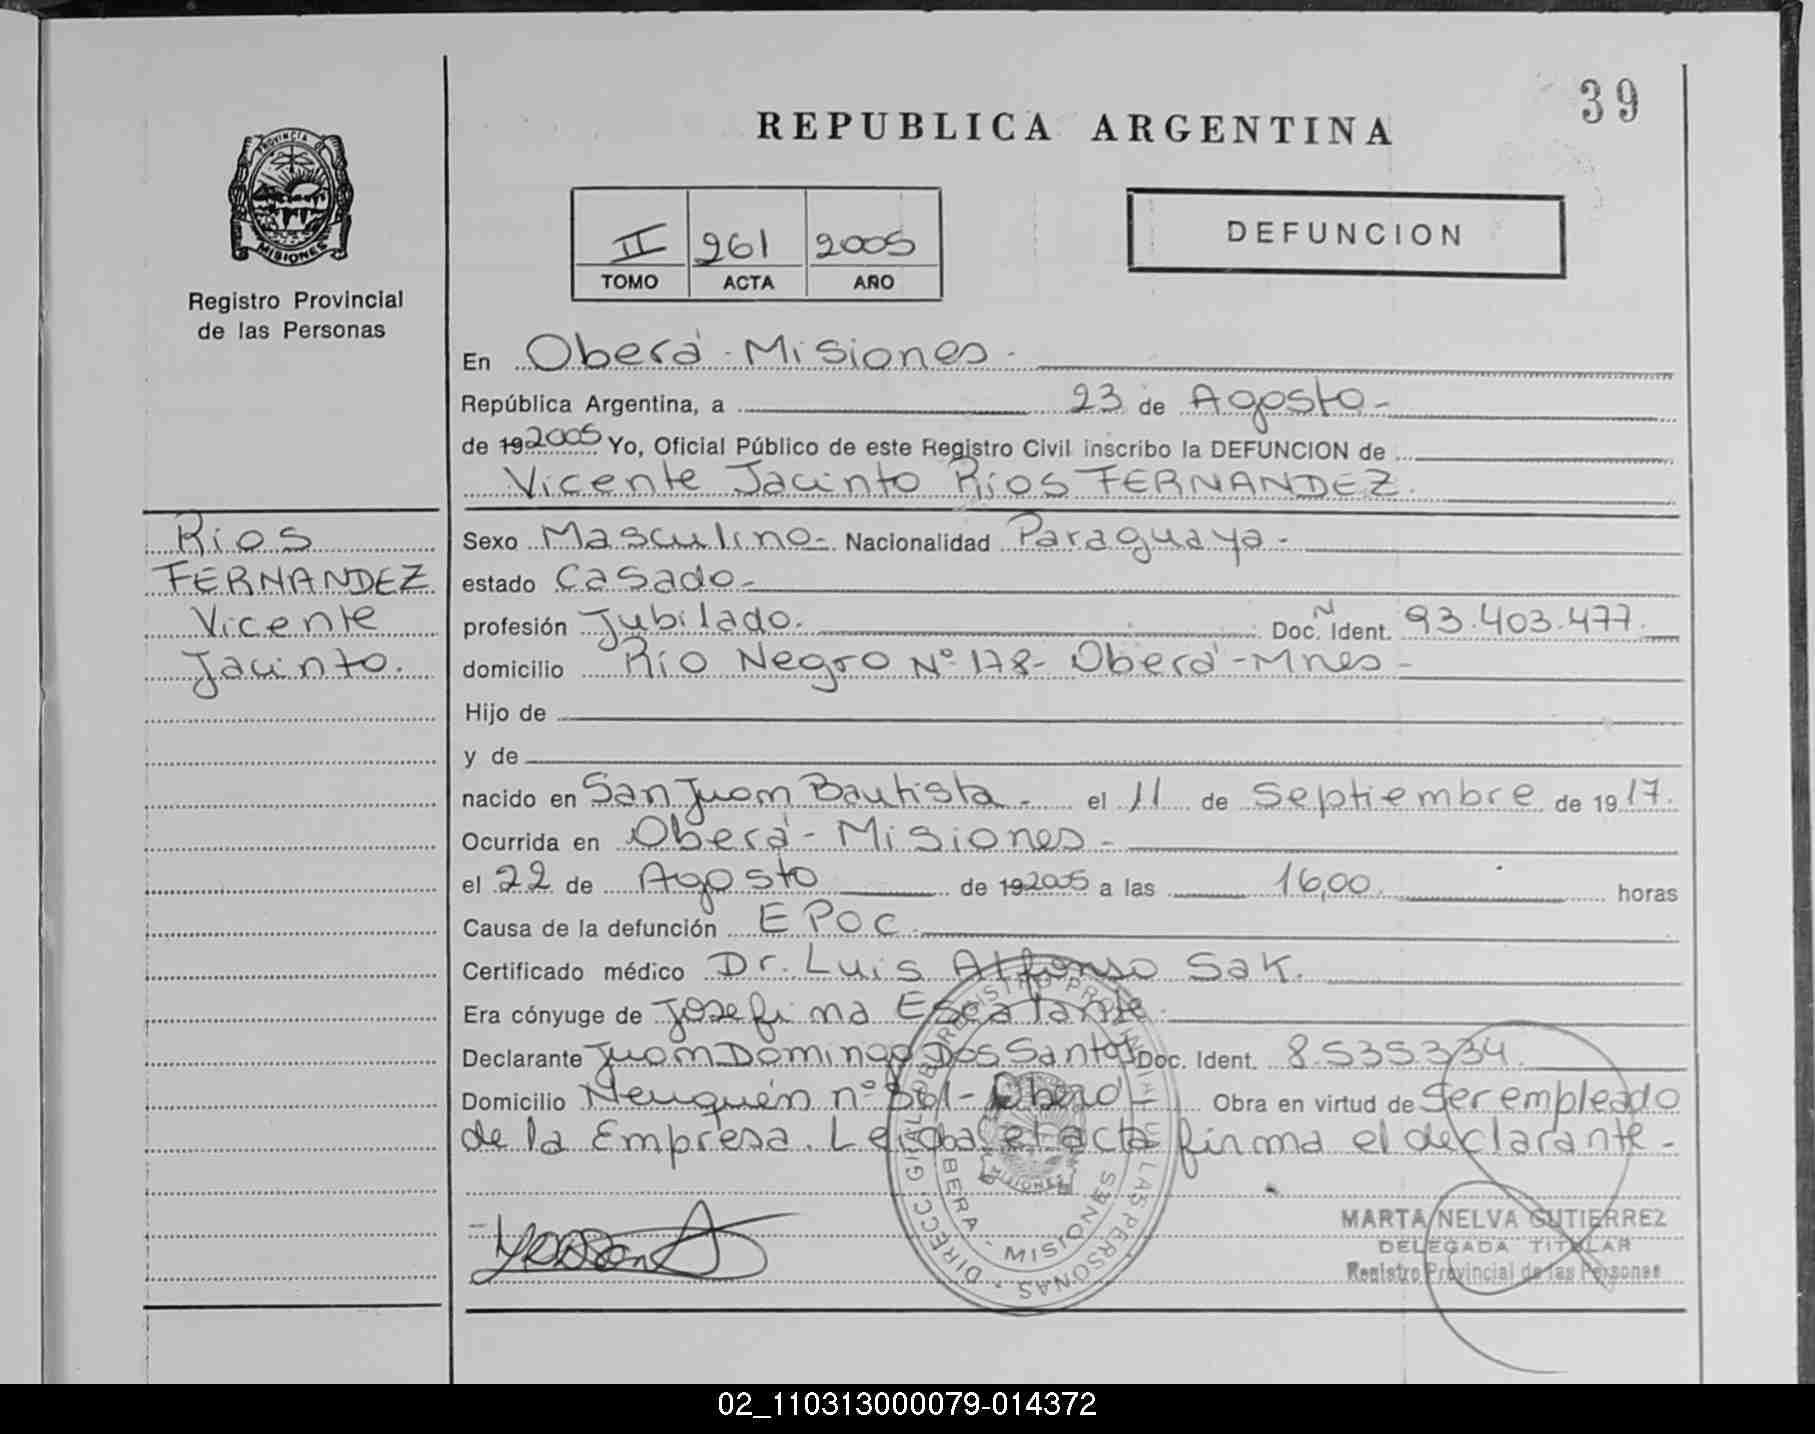 39
REPUBLICA ARGENTINA
PROVINCIA DE
MISIONES
Registro Provincial
de las Personas
II 261 2005
TOMO ACTA AÑO
DEFUNCION
En Oberá - Misiones -
República Argentina, a 23 de Agosto -
de 19 2005 Yo, Oficial Público de este Registro Civil inscribo la DEFUNCION de
Vicente Jacinto Ríos FERNANDEZ.
Ríos
FERNANDEZ
Vicente
Jacinto.
Sexo Masculino - Nacionalidad Paraguaya -
estado Casado -
profesión Jubilado. Doc. N Ident. 93.403.477.
domicilio Río Negro Nº 178 - Oberá - Mnes -
Hijo de
y de
nacido en San Juan Bautista - el 11 de Septiembre de 19 17.
Ocurrida en Oberá - Misiones -
el 22 de Agosto de 19 2005 a las 16,00 horas
Causa de la defunción EPOC.
Certificado médico Dr. Luis Alfonso Sak.
Era cónyuge de Josefina Escalante.
Declarante Juan Domingo Dos Santos Doc. Ident. 8.535.334.
Domicilio Neuquén nº 361 - Oberá - Obra en virtud de Ser empleado
de la Empresa. Leída el acta firma el declarante -
MARTA NELVA GUTIERREZ
DELEGADA TITULAR
Registro Provincial de las Personas
02_110313000079-014372